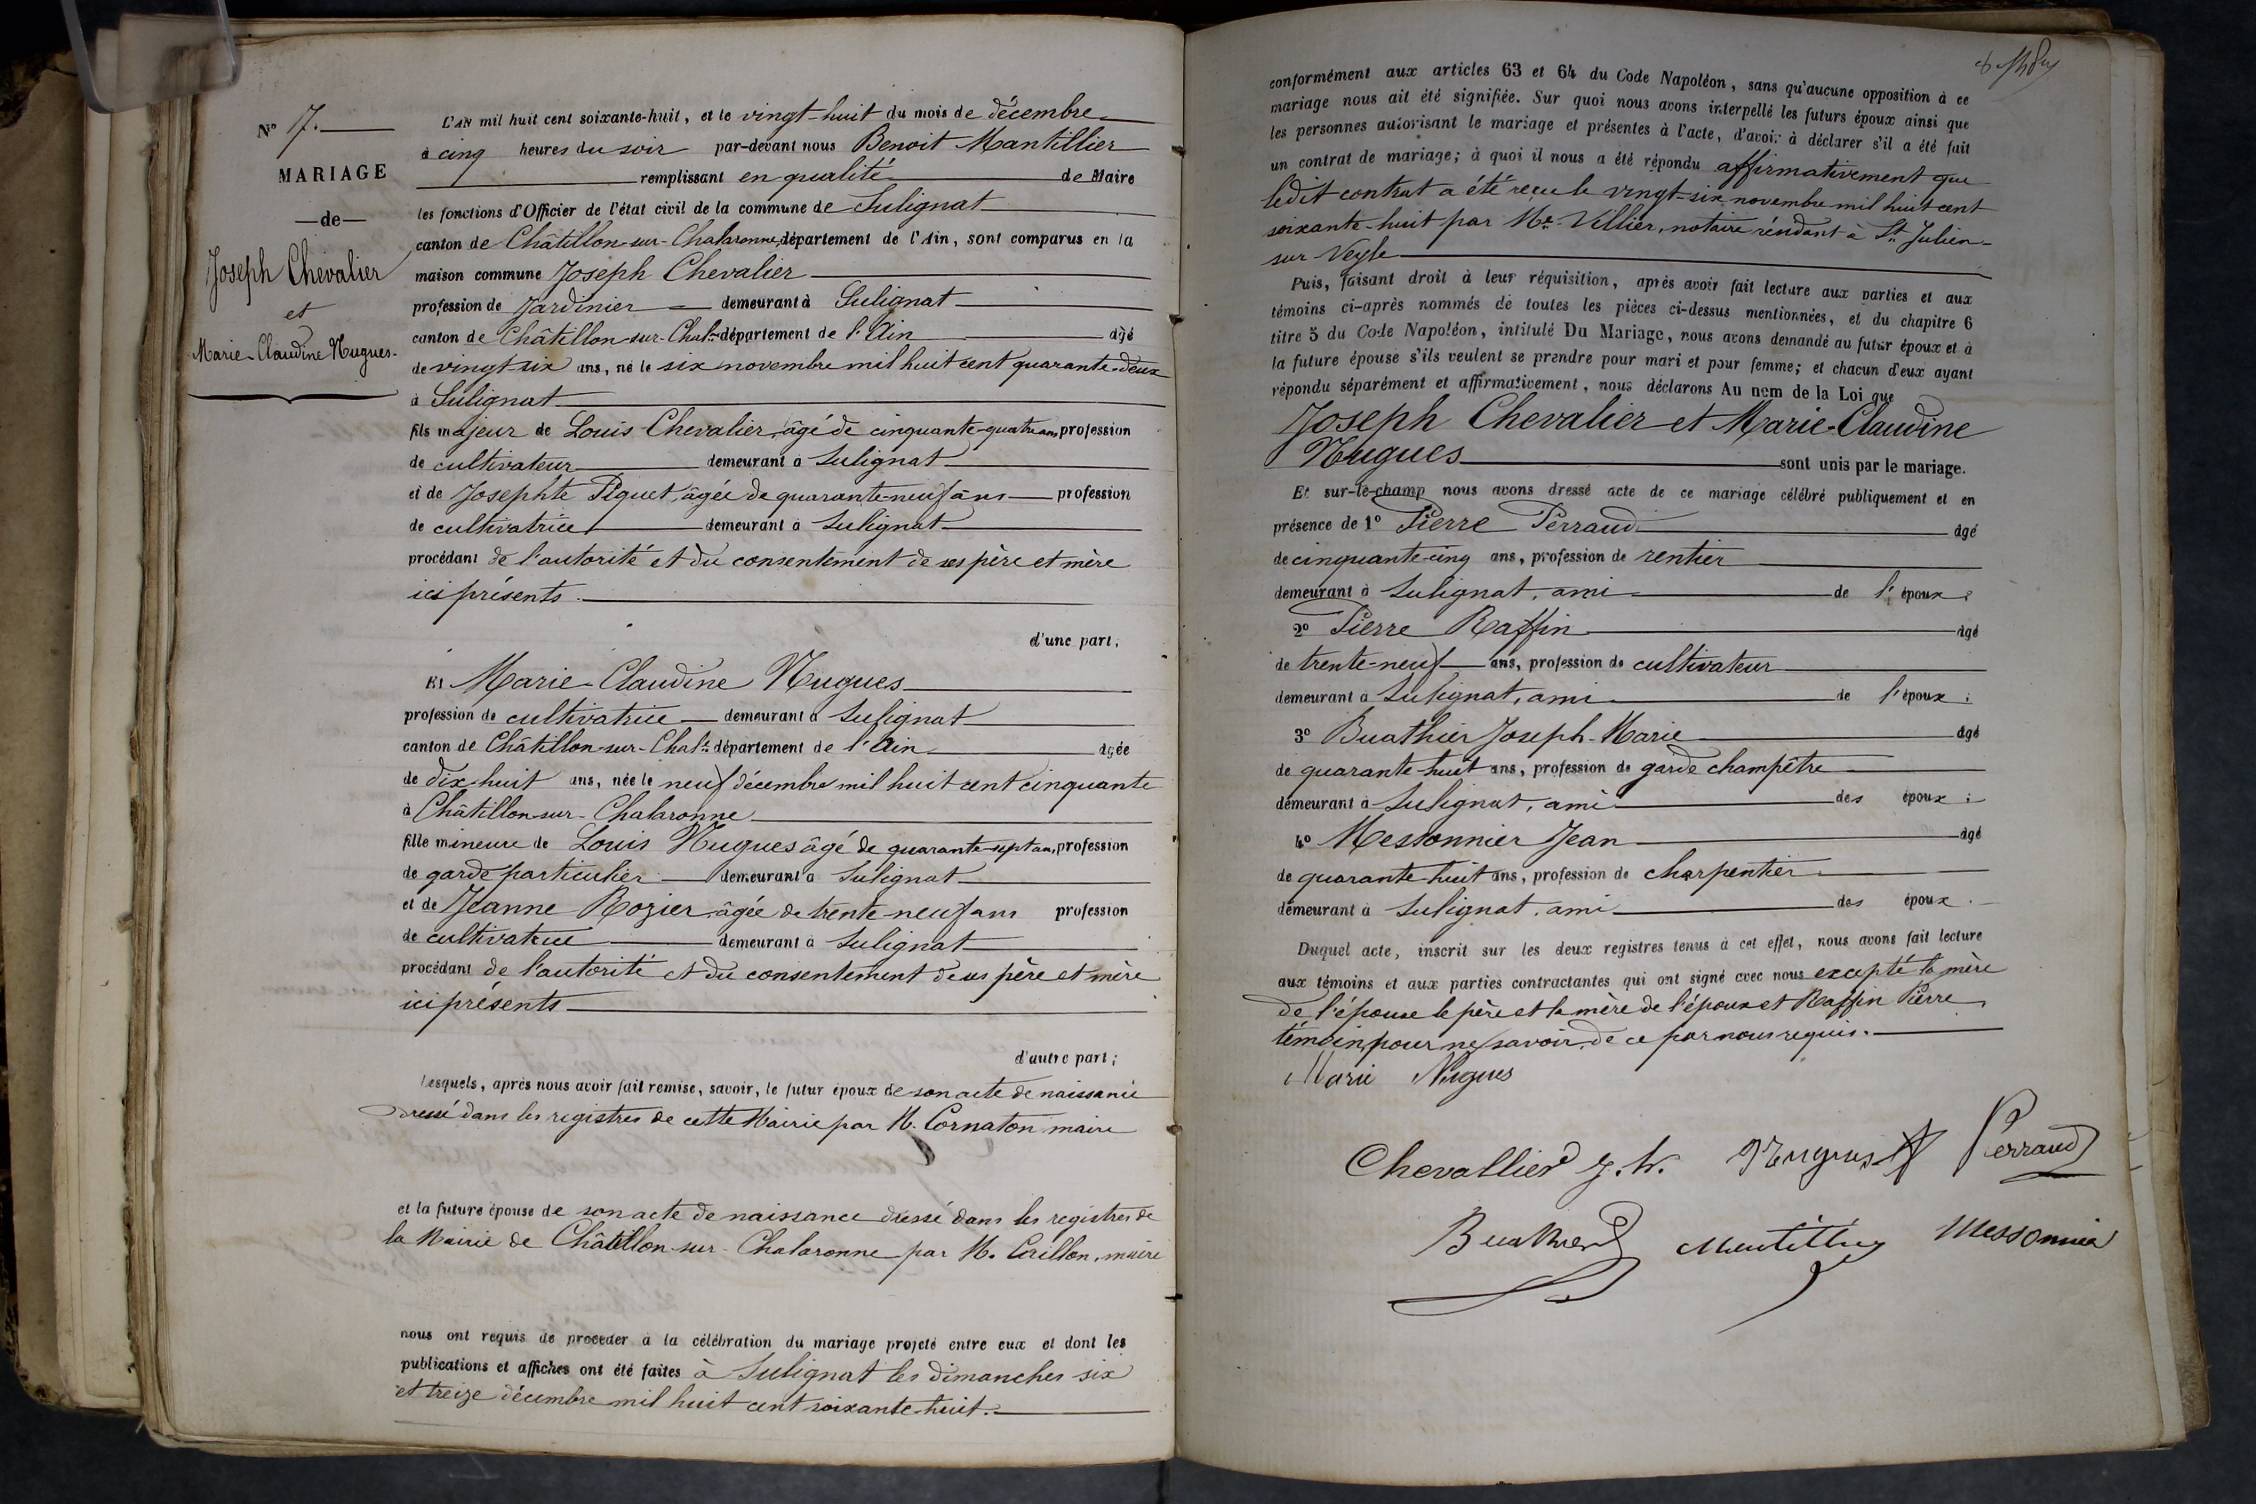 N° 17.
MARIAGE
—de—
Joseph Chevalier
et
Marie-Claudine Nugues.
L'AN mil huit cent soixante-huit, et le vingt-huit du mois de décembre
à cinq heures du soir par-devant nous Benoit Mantillier
remplissant en qualité de Maire
les fonctions d'Officier de l'état civil de la commune de Sulignat
canton de Châtillon-sur-Chalaronne, département de l'Ain, sont comparus en la
maison commune Joseph Chevalier
profession de Jardinier demeurant à Sulignat
canton de Châtillon-sur-Chal.ne département de l'Ain âgé
de vingt six ans, né le six novembre mil huit cent quarante-deux
à Sulignat
fils majeur de Louis Chevalier, âgé de cinquante-quatre ans, profession
de cultivateur demeurant à Sulignat
et de Josephte Piquet, âgée de quarante-neuf ans profession
de cultivatrice demeurant à Sulignat
procédant de l'autorité et du consentement de ses père et mère
ici présents.
d'une part,
Et Marie-Claudine Nugues
profession de cultivatrice demeurant à Sulignat
canton de Châtillon-sur-Chal.ne département de l'Ain âgée
de dix-huit ans, née le neuf décembre mil huit cent cinquante
à Châtillon-sur-Chalaronne
fille mineure de Louis Nugues âgé de quarante-sept ans, profession
de garde particulier demeurant à Sulignat
et de Jeanne Rozier, âgée de trente-neuf ans profession
de cultivatrice demeurant à Sulignat
procédant de l'autorité et du consentement de ses père et mère
ici présents
d'autre part;
Lesquels, après nous avoir fait remise, savoir, le futur époux de son acte de naissance
dressé dans les registres de cette Mairie par M. Cornaton maire
et la future épouse de son acte de naissance dressé dans les registres de
la Mairie de Châtillon-sur-Chalaronne par M. Cirillon, maire
nous ont requis de procéder à la célébration du mariage projeté entre eux et dont les
publications et affiches ont été faites à Sulignat les dimanches six
et treize décembre mil huit cent soixante-huit.
conformément aux articles 63 et 64 du Code Napoléon, sans qu'aucune opposition à ce
mariage nous ait été signifiée. Sur quoi nous avons interpellé les futurs époux ainsi que
les personnes autorisant le mariage et présentes à l'acte, d'avoir à déclarer s'il a été fait
un contrat de mariage; à quoi il nous a été répondu affirmativement que
ledit contrat a été reçu le vingt-six novembre mil huit cent
soixante-huit par Me. Villier, notaire résidant à St Julien-
sur Veyle
Puis, faisant droit à leur réquisition, après avoir fait lecture aux parties et aux
témoins ci-après nommés de toutes les pièces ci-dessus mentionnées, et du chapitre 6
titre 5 du Code Napoléon, intitulé Du Mariage, nous avons demandé au futur époux et à
la future épouse s'ils veulent se prendre pour mari et pour femme; et chacun d'eux ayant
répondu séparément et affirmativement, nous déclarons Au nom de la Loi que
Joseph Chevalier et Marie-Claudine
Nugues sont unis par le mariage.
Et sur-le-champ nous avons dressé acte de ce mariage célébré publiquement et en
présence de 1° Pierre Perraud âgé
de cinquante-cinq ans, profession de rentier
demeurant à Sulignat, ami de l'époux;
2° Pierre Raffin âgé
de trente-neuf ans, profession de cultivateur
demeurant à Sulignat, ami de l'époux;
3° Buathier Joseph-Marie âgé
de quarante-huit ans, profession de garde champêtre
demeurant à Sulignat, ami des époux;
4° Messonnier Jean âgé
de quarante-huit ans, profession de charpentier
demeurant à Sulignat, ami des époux.
Duquel acte, inscrit sur les deux registres tenus à cet effet, nous avons fait lecture
aux témoins et aux parties contractantes qui ont signé avec nous excepté la mère
de l'épouse le père et la mère de l'époux et Raffin Pierre
témoin, pour ne savoir, de ce par nous requis.
Marie Nugues
Chevallier J. Nugues Perraud
Buathier Mantillier Messonnier